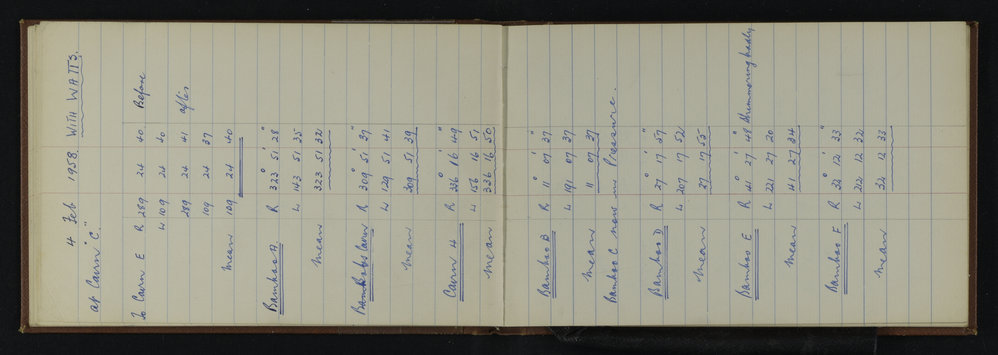 4 Feb 1958 WITH WATTS.
at Cairn "C."
To Cairn E R 289 24 40 Before
L 109 24 40
289 24 41 after
109 24 37
mean 109 24 40
Bamboo A R 323° 51' 28"
L 143 51 35
mean 323 51 32
Cairn R 309° 51' 37"
L 129 51 41
mean 309 51 39
Cairn 4 R 336° 16' 49"
L 156 16 51
mean 336 16 50
Bamboo B R 11° 07' 37"
L 191 07 37
mean 11 07 37
Bamboo C now in Pressure.
Bamboo D R 27° 17' 57"
L 207 17 52
mean 27 17 55
Bamboo E R 41° 27' 48" Shimmering badly
L 221 27 20
mean 41 27 34
Bamboo F R 32° 12' 33"
L 212 12 32
mean 32 12 33